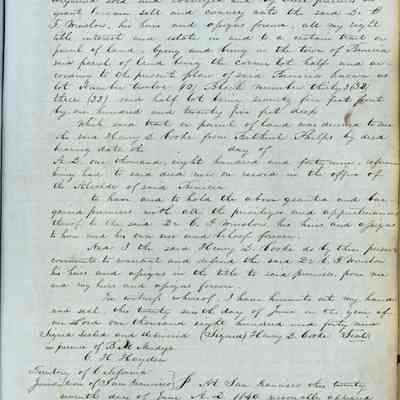 bargained sold and conveyed and by these presents do
grant sell and convey unto the said Dr. C
F. Winslow, his heirs and assigns forever, all my right
title interest and estate in and to a certain tract or
parcel of land, lying and being in the town of Benicia
said parcel of land being the corner lot half and ac-
cording to the present plan of said Benicia known as
lot Number twelve (12) Block number thirty
three (33) said half lot being seventy five feet front
by one hundred and twenty five feet deep
Which said tract or parcel of land was deeded to me
the said Henry D. Cooke from Phelps by deed
bearing date the day of
A.D. one thousand, eight hundred and forty nine, refer-
ence being had to said deed now on record in the office of
the Alcalde of said Benicia
to have and to hold the above granted and bar
gained premises with all the privileges and appurtenances
thereof to the said Dr C F Winslow his heirs and assigns
to him and his own use and behoof forever.
And I the said Henry D. Cooke do by these presents
covenant to warrant and defend the said Dr C F Winslow
his heirs and assigns in the title to said premises, from me
and my heirs and assigns forever.
In witness whereof, I have hereunto set my hand
and seal, this twenty ninth day of June in the year of
our Lord one thousand eight hundred and forty nine
Signed sealed and delivered (Signed) Henry D. Cooke Seal
in presence of B. R.
C. H. Hayden
Territory of California
Jurisdiction of San Francisco At San Francisco this twenty
ninth day of June A.D. 1849 personally appeared